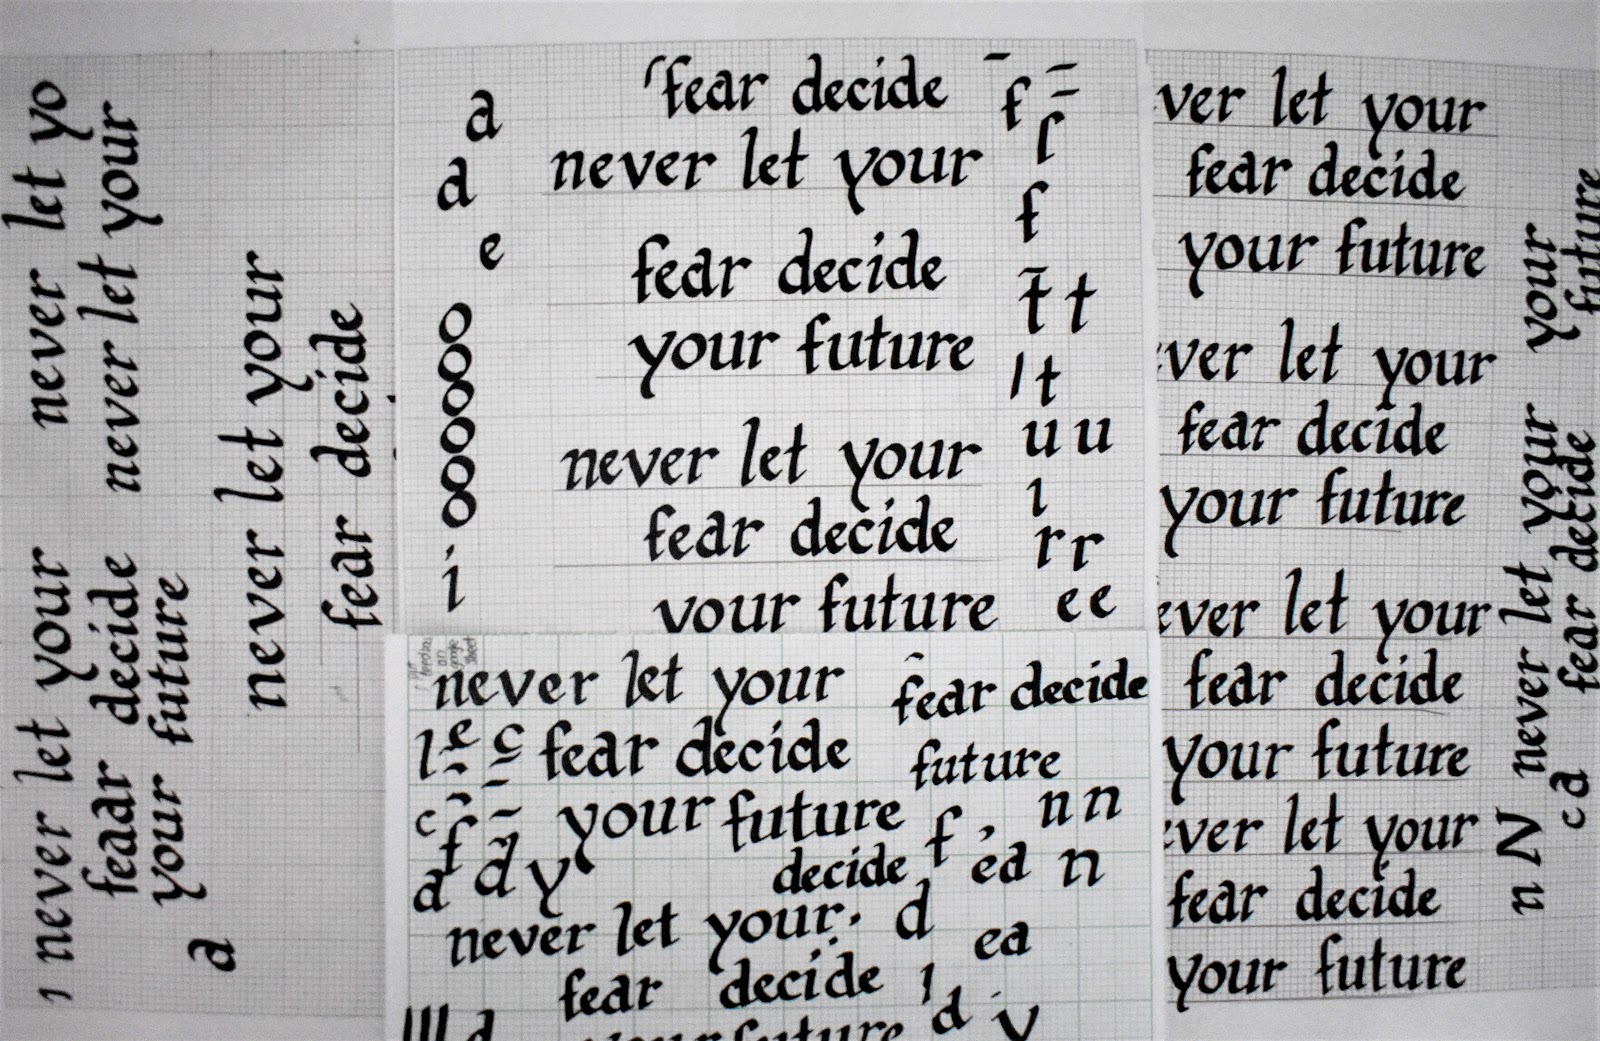 never let yo
never let your
never let your
fear decide
never let your
feaar decide
your future
a
fear decide
never let your
fear decide
your future
never let your
fear decide
your future
a
d
e
o
o
o
o
o
o
i
f
f
t t
l t
u u
ı
r r
e e
never let your
fear decide
your future
l e c
c f
a d y
fear decide
future
decide
f , n n
ea n
never let your
d
ea
fear decide
your future
d
d y
ver let your
fear decide
your future
ver let your
fear decide
your future
ever let your
fear decide
your future
ver let your
fear decide
your future
n N never let your your
c a fear decide future